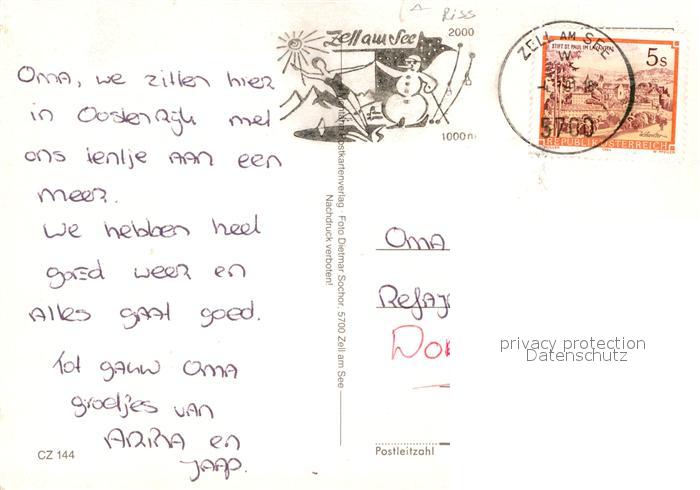 Riss
Zell am See
2000
1000m
ZELL AM SEE
5700
STIFT ST. PAUL IM LAVANTTAL
5s
REPUBLIK ÖSTERREICH
Oma, we zitten hier
in Oostenrijk met
ons tentje aan een
meer.
We hebben heel
goed weer en
alles gaat goed.
Tot gauw Oma
groetjes van
Anna en
Jaap.
Postkartenverlag · Foto Dietmar Sochor, 5700 Zell am See
Nachdruck verboten!
Oma
privacy protection
Datenschutz
Postleitzahl
CZ 144